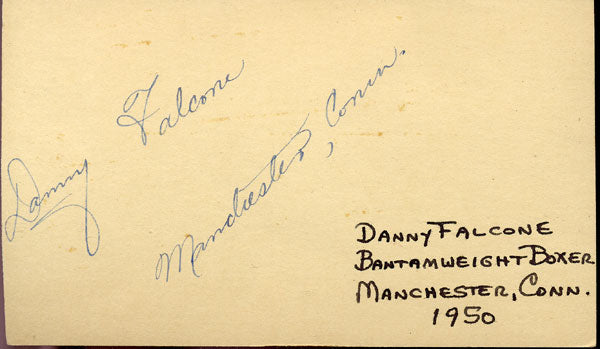 Danny Falcone
Manchester, Conn.
DANNY FALCONE
BANTAMWEIGHT BOXER
MANCHESTER, CONN.
1950